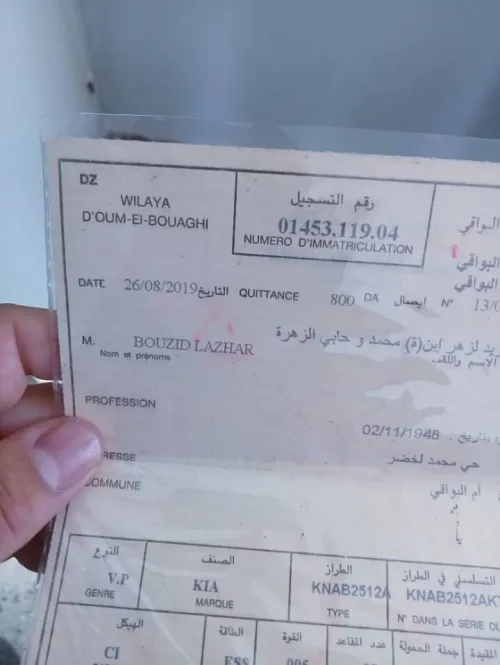 DZ
WILAYA
D'OUM-El-BOUAGHI
رقم التسجيل
01453.119.04
NUMERO D'IMMATRICULATION
البواقي
البواقي
البواقي
DATE 26/08/2019 التاريخ QUITTANCE 800 DA ايصال N° 13/
M. BOUZID LAZHAR
Nom et prénoms
يد لزهر ابن(ة) محمد و حابي الزهرة
الاسم واللقب
PROFESSION
02/11/1948
RESSE
حي محمد لخضر
COMMUNE
أم البواقي
النوع
V.P
GENRE
الصنف
KIA
MARQUE
الطراز
KNAB2512A
TYPE
التسلسلي في الطراز
KNAB2512AK
N° DANS LA SERIE DU
الهيكل
CI
الطاقة
ESS
القوة
005
عدد المقاعد
جملة الحمولة
المقيدة